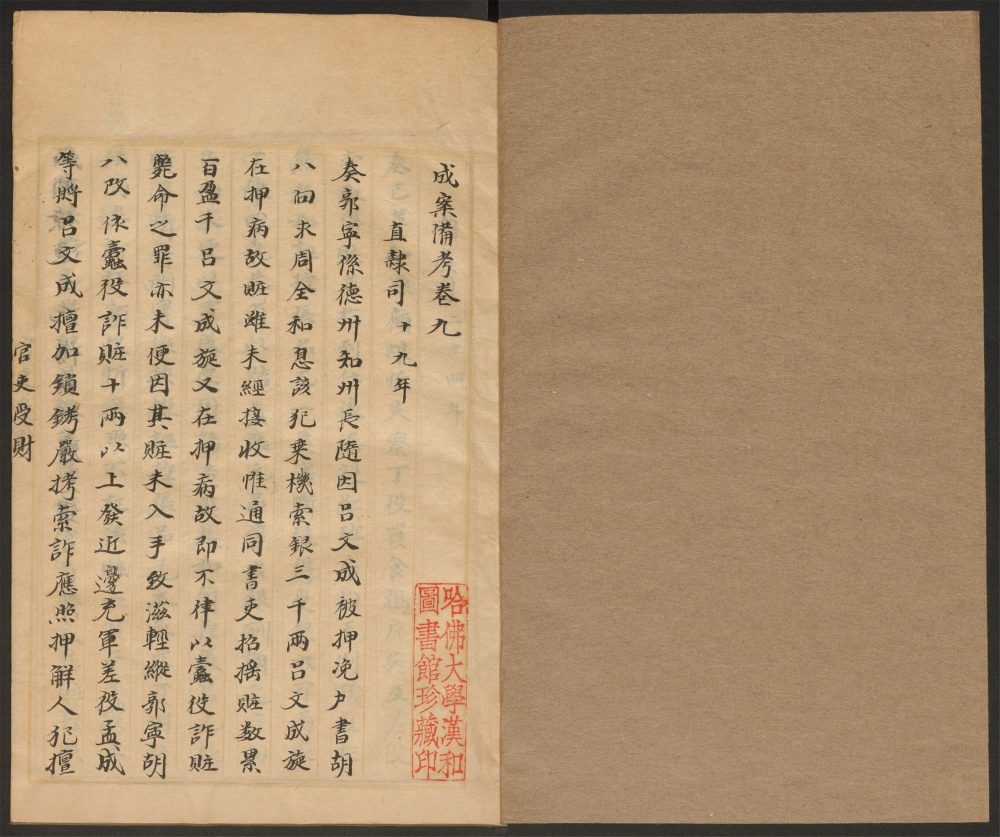 成案備考卷九
直隸司 十九年
奏郭寧係德州知州長隨因呂文成被押浼户書胡
八向求周全和息該犯乗機索銀三千兩呂文成旋
在押病故賍雖未經接收惟通同書吏招摇賍数累
百盈千呂文成旋又在押病故即不律以蠹役詐賍
斃命之罪亦未便因其賍未入手致滋輕縱郭寧胡
八改依蠹役詐賍十兩以上發近邊充軍差役孟成
等將呂文成擅加鎖銬嚴拷索詐應照押解人犯擅
官吏受財
哈佛大學漢和
圖書館珍藏印